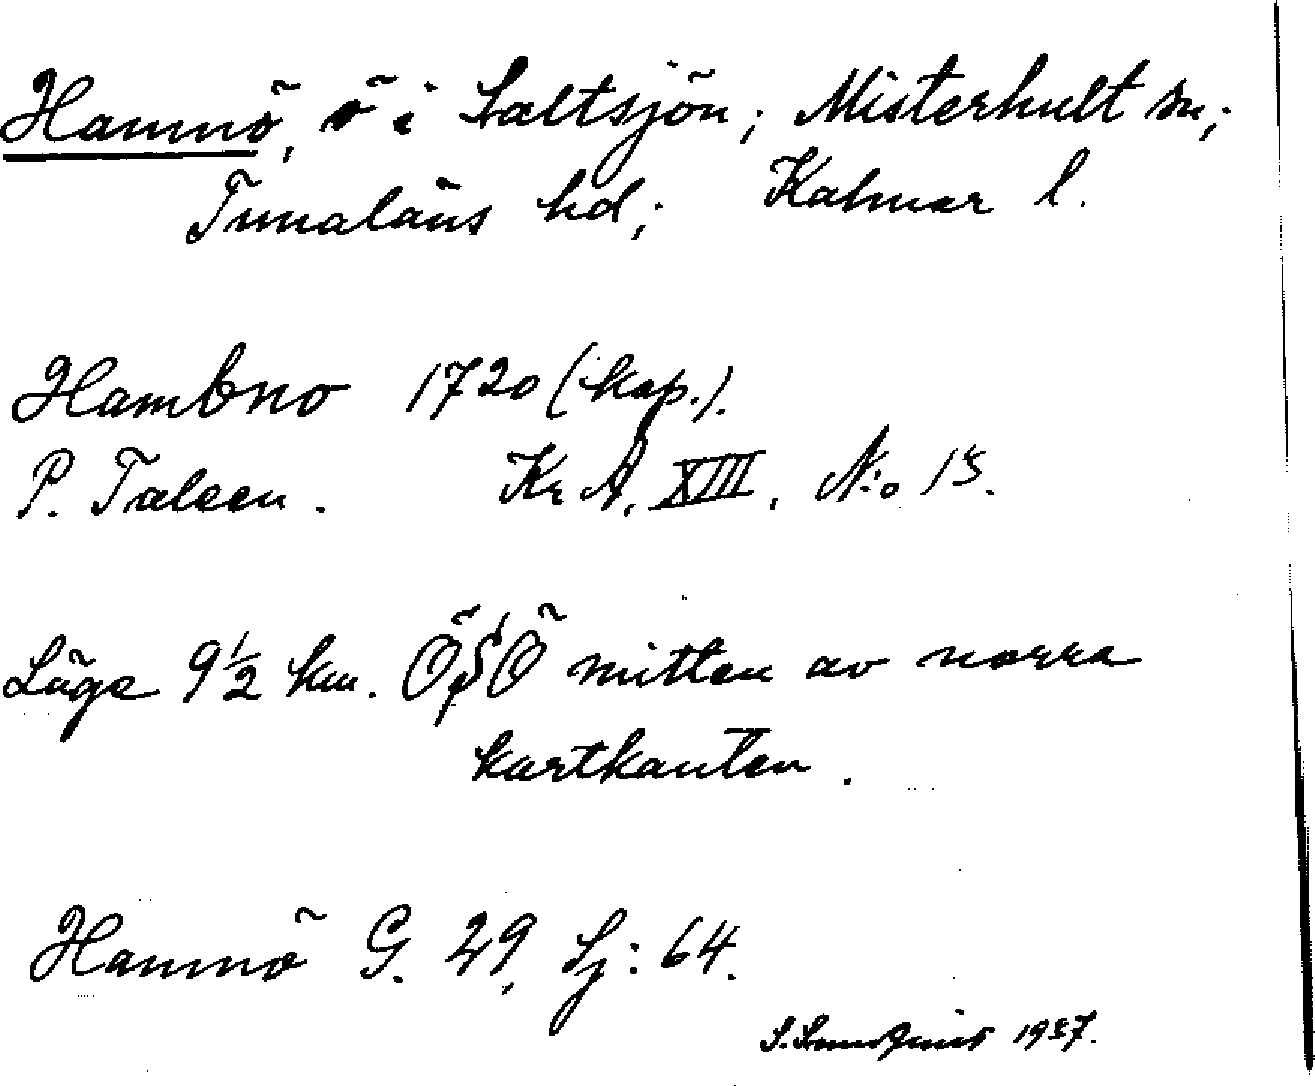 Hamnö, ö i Saltsjön; Misterhult sn;
Tunaläns hd; Kalmar l.
Hambno 1720 (kop.).
P. Taleen. Kr A. XIII. N:o 15.
Läge 9½ km. ÖSÖ mitten av norra
kartkanten.
Hamnö G. 29, Sj: 64.
1937.